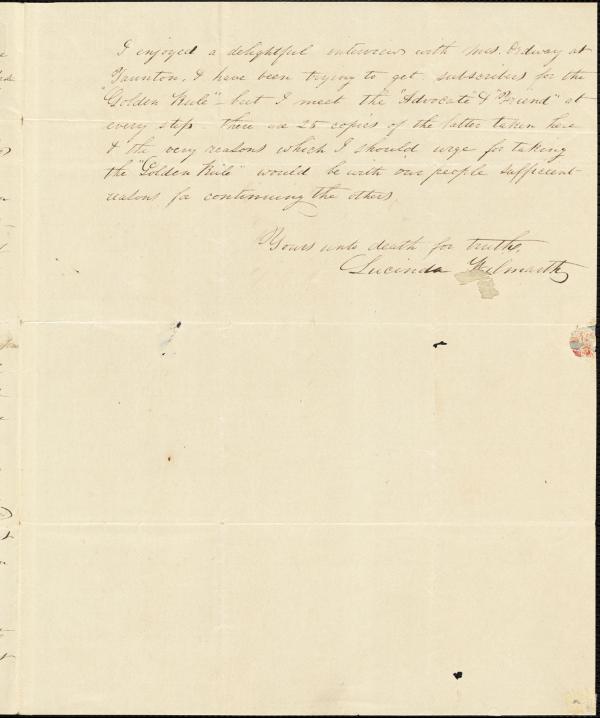 I enjoyed a delightful interview with Mrs. Ordway at
Taunton. I have been trying to get subscribers for the
"Golden Rule" - but I meet the "Advocate & "Friend" at
every step. there are 25 copies of the latter taken here
& the very reasons which I should urge for taking
the "Golden Rule" would be with our people sufficient
reasons for continuing the others.
Yours unto death for truth,
Lucinda Wilmarth